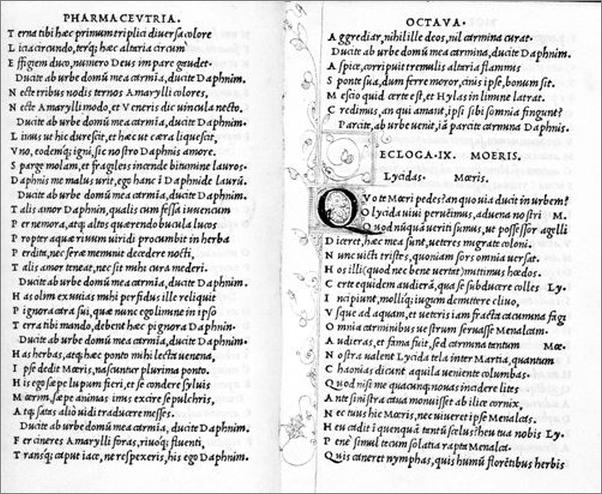 PHARMACEVTRIA.
T erna tibi hæc primum triplici diuersa colore
L icia circundo, terq; hæc altaria circum
E ffigiem duco, numero Deus impare gaudet.
D ucite ab urbe domū mea carmīa, ducite Daphnim.
N ecte tribus nodis ternos Amarylli colores,
N ecte Amarylli modo, et Veneris dic uincula necto.
D ucite ab urbe domū mea carmīa, ducite Daphnim.
L imus ut hic durescit, et hæc ut cæra liquescit,
V no, eodemq; igni, sic nostro Daphnis amore.
S parge molam, et fragiles incende bitumine lauros.
D aphnis me malus urit, ego hanc ī Daphnide laurū.
D ucite ab urbe domū mea carmīa, ducite Daphnim.
T alis amor Daphnin, qualis cum fessa iuuencum
P er nemora, atq; altos quærendo bucula lucos
P ropter aquæ riuum uiridi procumbit in herba
P erdita, nec seræ meminit decedere nocti,
T alis amor teneat, nec sit mihi cura mederi.
D ucite ab urbe domū mea carmīa, ducite Daphnim.
H as olim exuuias mihi perfidus ille reliquit
P ignora cara sui, quæ nunc ego limine in ipso
T erra tibi mando, debent hæc pignora Daphnin.
D ucite ab urbe domū mea carmīa, ducite Daphnim.
H as herbas, atq; hæc ponto mihi lecta uenena,
I pse dedit Mœris, nascuntur plurima ponto.
H is ego sæpe lupum fieri, et se condere syluis
M œrim, sæpe animas imis excire sepulchris,
A tq; satas alio uidi traducere messes.
D ucite ab urbe domū mea carmīa, ducite Daphnim.
F er cineres Amarylli foras, riuoq; fluenti,
T ransq; caput iace, ne respexeris, his ego Daphnim.
OCTAVA.
A ggrediar, nihil ille deos, nil carmina curat.
D ucite ab urbe domū mea carmīa, ducite Daphnim.
A spice, corripuit tremulis altaria flammis
S ponte sua, dum ferre moror, cinis ipse, bonum sit.
N escio quid certe est, et Hylas in limine latrat.
C redimus, an qui amant, ipsi sibi somnia fingunt?
P arcite, ab urbe uenit, iā parcite carmina Daphnis.
ECLOGA.IX. MOERIS.
Lycidas. Mœris.
Q VO te Mœri pedes? an quo uia ducit in urbem?
O Lycida uiui peruenimus, aduena nostri M.
Q uod nūquā ueriti sumus, ut possessor agelli
D iceret, hæc mea sunt, ueteres migrate coloni.
N unc uicti tristes, quoniam sors omnia uersat.
H os illi (quod nec bene uertat) mittimus hœdos.
C erte equidem audierā, qua se subducere colles Ly.
I ncipiunt, molliq; iugum demittere cliuo,
V sque ad aquam, et ueteris iam fracta cacumina fagi
O mnia carminibus uestrum seruasse Menalcam.
A udieras, et fama fuit, sed carmina tantum Mœ.
N ostra ualent Lycida tela inter Martia, quantum
C haonias dicunt aquila ueniente columbas.
Q uod nisi me quacunq; nouas incidere lites
A nte sinistra caua monuisset ab ilice cornix,
N ec tuus hic Mœris, nec uiueret ipse Menalcas.
H eu cadit ī quenquā tantū scelus? heu tua nobis Ly.
P enè simul tecum solatia rapta Menalca.
Q uis caneret nymphas, quis humū florētibus herbis